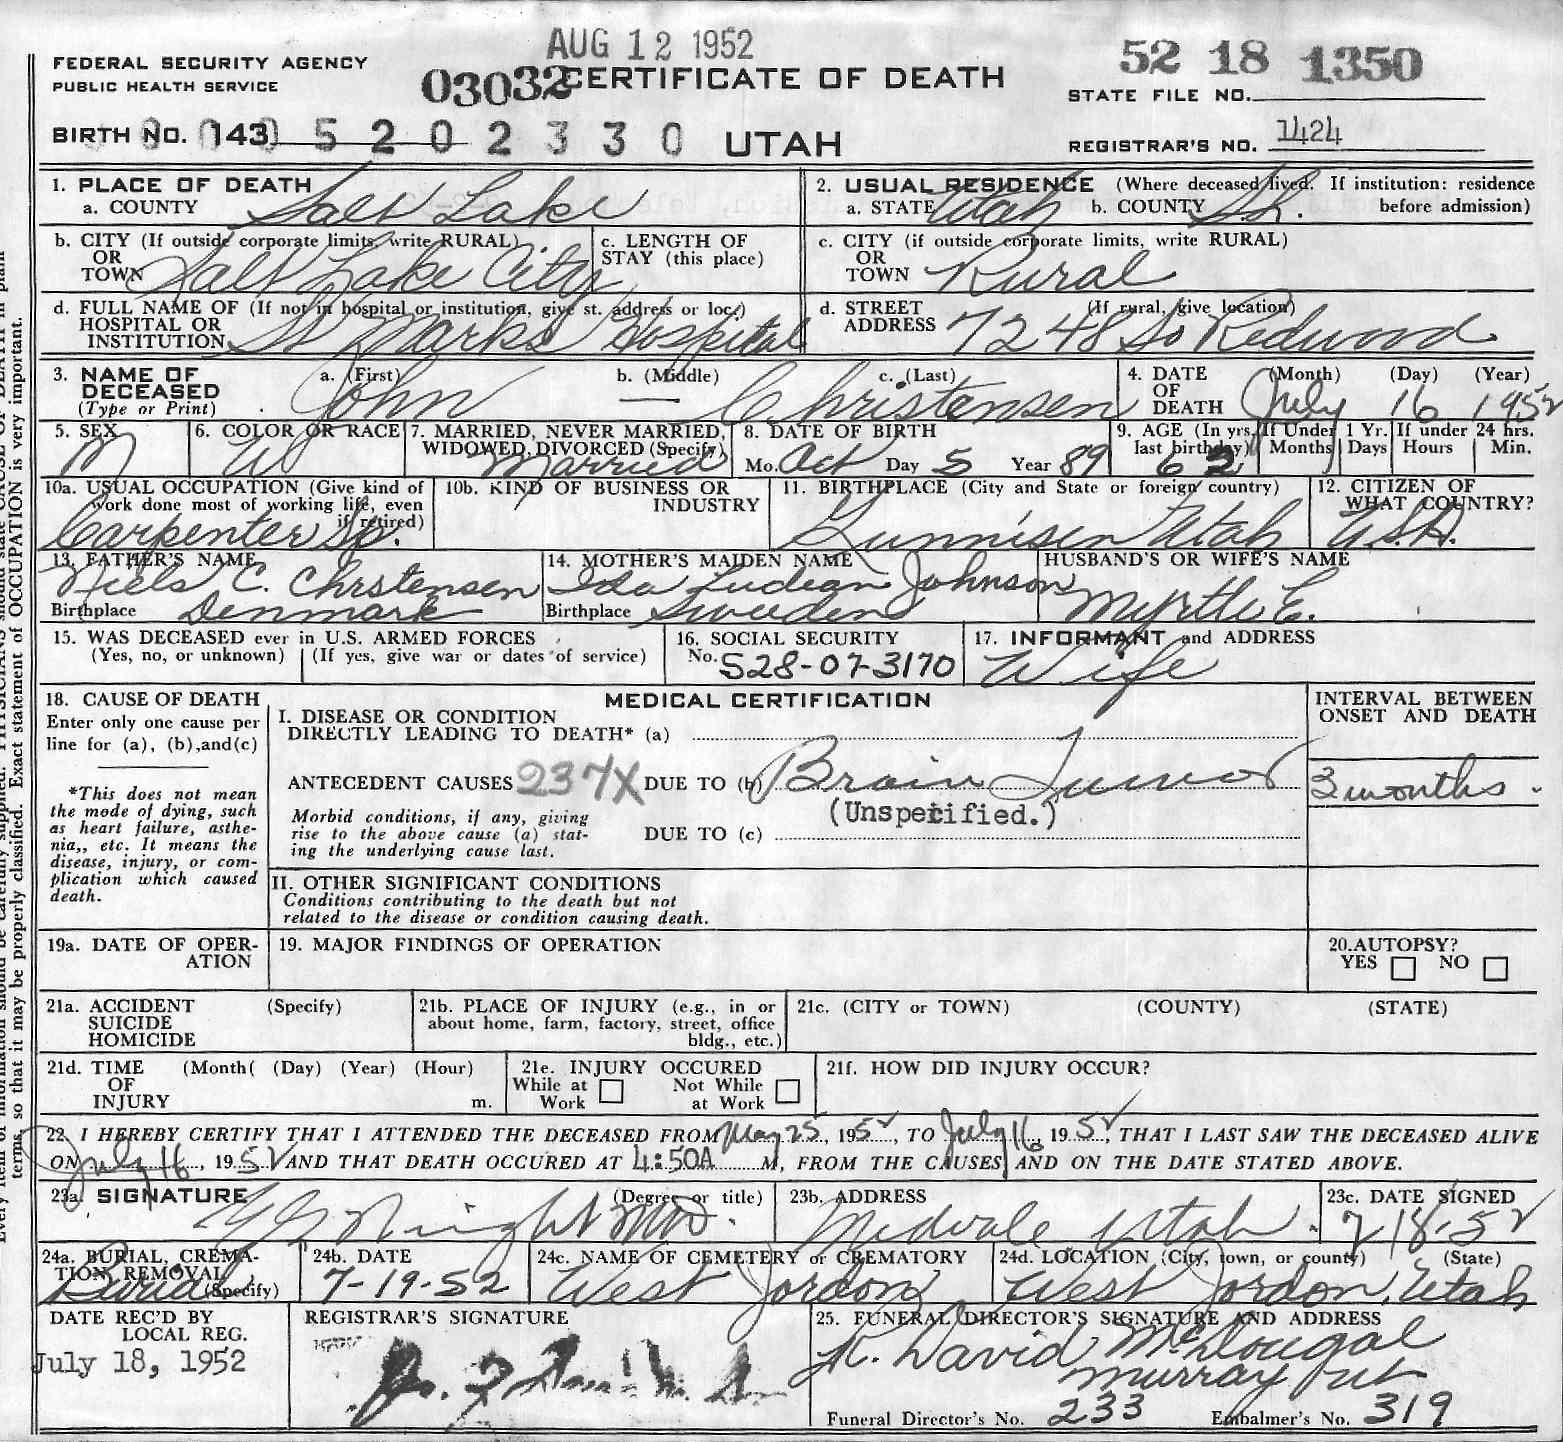 AUG 12 1952
FEDERAL SECURITY AGENCY
PUBLIC HEALTH SERVICE
03032 CERTIFICATE OF DEATH
52 18 1350
STATE FILE NO.
BIRTH NO. 143 5 2 0 2 3 3 0 UTAH
REGISTRAR'S NO. 1424
1. PLACE OF DEATH
a. COUNTY Salt Lake
2. USUAL RESIDENCE (Where deceased lived. If institution: residence before admission)
a. STATE Utah b. COUNTY S.L.
b. CITY (If outside corporate limits, write RURAL) OR TOWN Salt Lake City
c. LENGTH OF STAY (this place)
c. CITY (if outside corporate limits, write RURAL) OR TOWN Rural
d. FULL NAME OF (If not in hospital or institution, give st. address or loc.) HOSPITAL OR INSTITUTION St Marks Hospital
d. STREET ADDRESS (If rural, give location) 7248 So Redwood
3. NAME OF DECEASED (Type or Print)
a. (First) John b. (Middle) — c. (Last) Christensen
4. DATE OF DEATH (Month) (Day) (Year) July 16 1952
5. SEX M
6. COLOR OR RACE W
7. MARRIED, NEVER MARRIED, WIDOWED, DIVORCED (Specify) Married
8. DATE OF BIRTH Mo. Oct Day 5 Year 89
9. AGE (In yrs. last birthday) 62
If Under 1 Yr. Months Days
If under 24 hrs. Hours Min.
10a. USUAL OCCUPATION (Give kind of work done most of working life, even if retired) Carpenter
10b. KIND OF BUSINESS OR INDUSTRY
11. BIRTHPLACE (City and State or foreign country) Gunnison Utah
12. CITIZEN OF WHAT COUNTRY? U.S.A.
13. FATHER'S NAME Niels C. Chrstensen
Birthplace Denmark
14. MOTHER'S MAIDEN NAME Ida Ludean Johnson
Birthplace Sweeden
HUSBAND'S OR WIFE'S NAME Myrtle E.
15. WAS DECEASED ever in U.S. ARMED FORCES
(Yes, no, or unknown) (If yes, give war or dates of service)
16. SOCIAL SECURITY No. 528-07-3170
17. INFORMANT and ADDRESS Wife
18. CAUSE OF DEATH
Enter only one cause per line for (a), (b), and (c)
*This does not mean the mode of dying, such as heart failure, asthenia,, etc. It means the disease, injury, or complication which caused death.
MEDICAL CERTIFICATION
INTERVAL BETWEEN ONSET AND DEATH
I. DISEASE OR CONDITION DIRECTLY LEADING TO DEATH* (a)
ANTECEDENT CAUSES 237X DUE TO (b) Brain Tumor 3 months.
(Unspecified.)
Morbid conditions, if any, giving rise to the above cause (a) stating the underlying cause last.
DUE TO (c)
II. OTHER SIGNIFICANT CONDITIONS
Conditions contributing to the death but not related to the disease or condition causing death.
19a. DATE OF OPERATION
19. MAJOR FINDINGS OF OPERATION
20. AUTOPSY? YES NO
21a. ACCIDENT SUICIDE HOMICIDE (Specify)
21b. PLACE OF INJURY (e.g., in or about home, farm, factory, street, office bldg., etc.)
21c. (CITY or TOWN) (COUNTY) (STATE)
21d. TIME OF INJURY (Month( (Day) (Year) (Hour) m.
21e. INJURY OCCURED While at Work Not While at Work
21f. HOW DID INJURY OCCUR?
22. I HEREBY CERTIFY THAT I ATTENDED THE DECEASED FROM May 25, 1952, TO July 16, 1952, THAT I LAST SAW THE DECEASED ALIVE
ON July 16, 1952 AND THAT DEATH OCCURED AT 4:50A M, FROM THE CAUSES AND ON THE DATE STATED ABOVE.
23a. SIGNATURE (Degree or title) M.D.
23b. ADDRESS Midvale Utah.
23c. DATE SIGNED 7-18-52
24a. BURIAL, CREMATION, REMOVAL (Specify) Burial
24b. DATE 7-19-52
24c. NAME OF CEMETERY or CREMATORY West Jordon
24d. LOCATION (City, town, or county) (State) West Jordon, Utah
DATE REC'D BY LOCAL REG. July 18, 1952
REGISTRAR'S SIGNATURE
25. FUNERAL DIRECTOR'S SIGNATURE AND ADDRESS
R. David McDougal
Murray Ut
Funeral Director's No. 233 Embalmer's No. 319